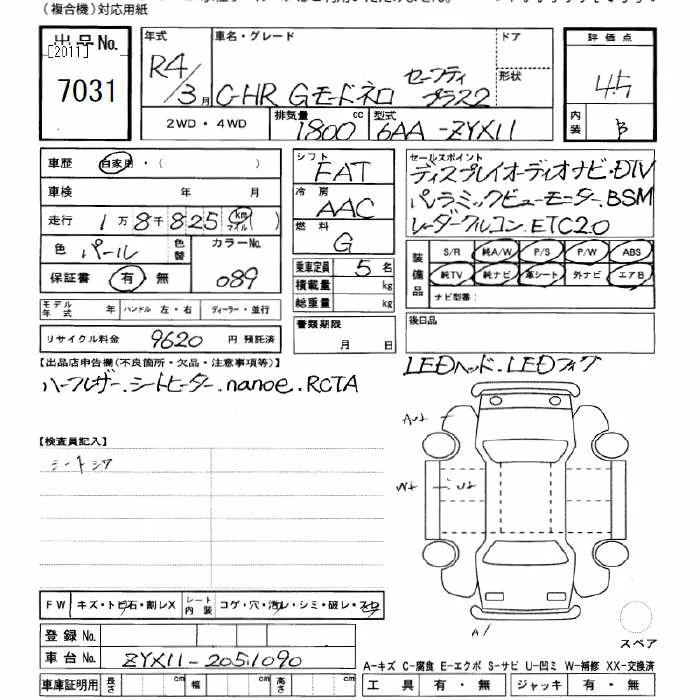 (複合機)対応用紙
出品No. 年式 車名・グレード ドア 評価点
[2011]
7031 R4/3月 C-HR Gモードネロ セーフティプラス2 形状 4.5
2WD・4WD 排気量 1800 cc 型式 6AA-ZYX11 内装 B
車歴 自家用・( ) シフト FAT セールスポイント
ディスプレイオーディオナビ・DTV
車検 年 月 冷房 AAC パノラミックビューモニター、BSM
走行 1万8千825 km マイル ( ) 燃料 G レーダークルコン、ETC2.0
色 パール 色替 カラーNo. 089
保証書 有 無
乗車定員 5名
積載量 kg
総重量 kg
装備品 S/R 純A/W P/S P/W ABS
純TV 純ナビ 革シート 外ナビ エアB
ナビ型番:
モデル年式 年 ハンドル 左・右 ディーラー・並行
書類期限 年 月 日
後日品
リサイクル料金 9620 円 預託済
【出品店申告欄(不良箇所・欠品・注意事項等)】
LEDヘッド、LEDフォグ
ハーフレザー、シートヒーター、nanoe、RCTA
【検査員記入】
シートシワ
A
FW キズ・トビ石・割レX シート内装 コゲ・穴・汚レ・シミ・破レ・スレ
登録No.
車台No. ZYX11-2051090
スペア
A-キズ C-腐食 E-エクボ S-サビ U-凹ミ W-補修 XX-交換済
車庫証明用 長さ cm 幅 cm 高さ cm 工具 有・無 ジャッキ 有・無